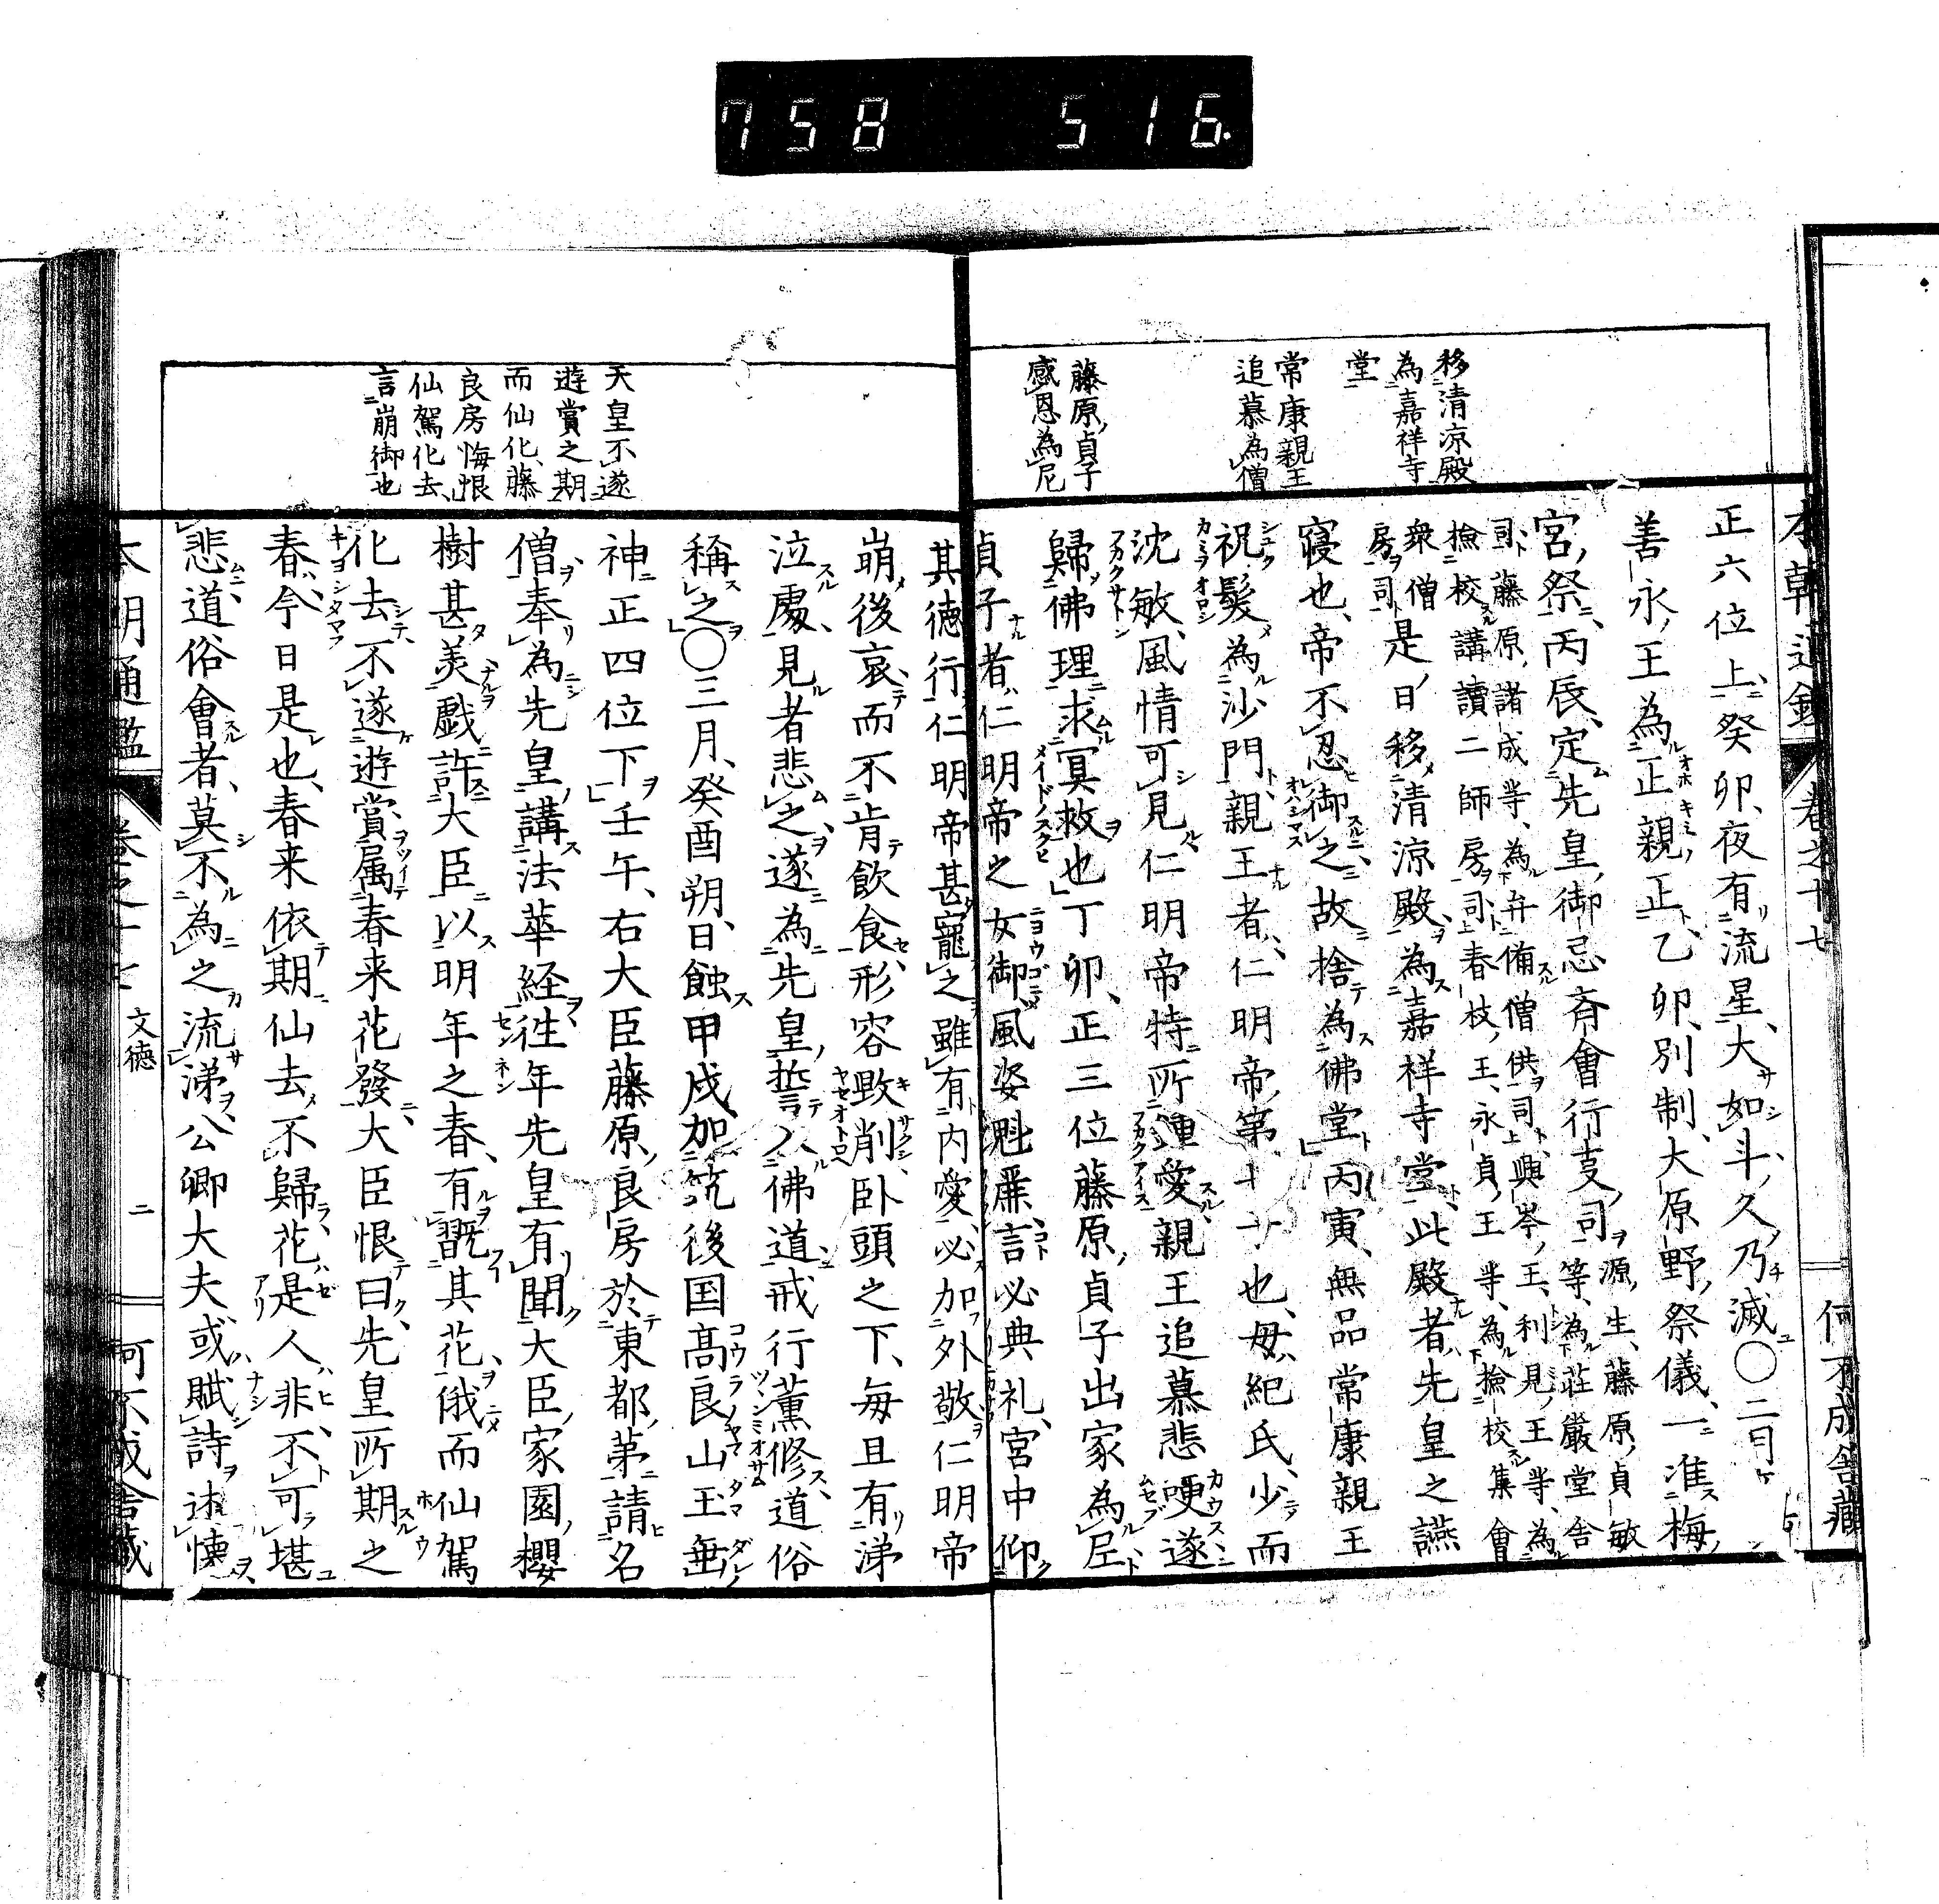 758 516.
本朝通鑑 卷之十七 何不成舍藏
移清涼殿
為嘉祥寺
堂
常康親王
追慕為僧
藤原貞子
感恩為尼
正六位上癸卯、夜有流星、大如斗、久乃滅〇二司
善永王為正親正乙卯、別制、大原野祭儀、一准梅
宮祭、丙辰、定先皇御忌斉會行支司
源生、藤原貞敏
等、為莊嚴堂舎
司、藤原諸成等、為弁俻僧供司、興岑王、利見王等、為
撿校講讀二師房司、春枝王、永貞王等、為撿校集會
衆僧
房司
是日移清涼殿、為嘉祥寺堂、此殿者、先皇之讌
寝也、帝不忍御之故捨為佛堂丙寅、無品常康親王
祝髮為沙門、親王者、仁明帝第也、母紀氏、少而
沈敏、風情可見仁明帝特所鍾愛親王追慕悲哽遂
歸佛理求冥救也丁卯、正三位藤原貞子出家為尼
貞子者、仁明帝之女御、風姿魁麗、言必典礼、宮中仰
其徳行仁明帝甚寵之雖有内愛必加外敬仁明帝
崩後哀而不肯飲食、形容毀削、卧頭之下、毎且有涕
泣處、見者悲之、遂為先皇誓入佛道戒行薫修、道俗
稱之〇三月、癸酉朔、日蝕甲戌加筑後国高良山玉垂
神正四位下壬午、右大臣藤原良房於東都第請名
僧奉為先皇講法華経徃年先皇有聞大臣家園櫻
樹甚美戯許大臣以明年之春、有翫其花俄而仙駕
化去不遂遊賞、属春来花發、大臣恨曰、先皇所期之
春、今日是也、春来依期仙去不歸花是人非、不可堪
悲道俗會者、莫不為之流涕、公卿大夫、或賦詩述懐
天皇不遂
遊賞之期
而仙化、藤
良房悔恨
仙駕化去、
言崩御也
本朝通鑑 卷之十七 文徳 二 何不成舍藏